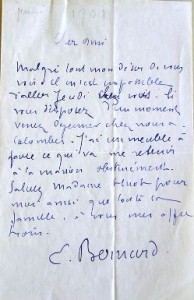 1908
Cher Ami
Malgré tout mon désir de vous
voir il m'est impossible
d'aller Jeudi chez vous. Si
vous disposez d'un moment
venez déjeuner chez nous à
Colombes. J'ai un meuble à
faire ce qui va me retenir
à la maison
Saluez Madame pour
moi ainsi que toute la
famille, à vous mes
C. Bernard.